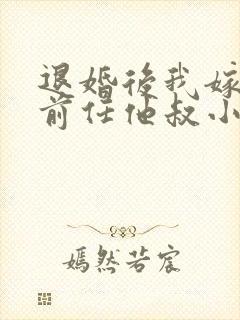 退婚後我嫁
前任他叔小
嫣然若宸